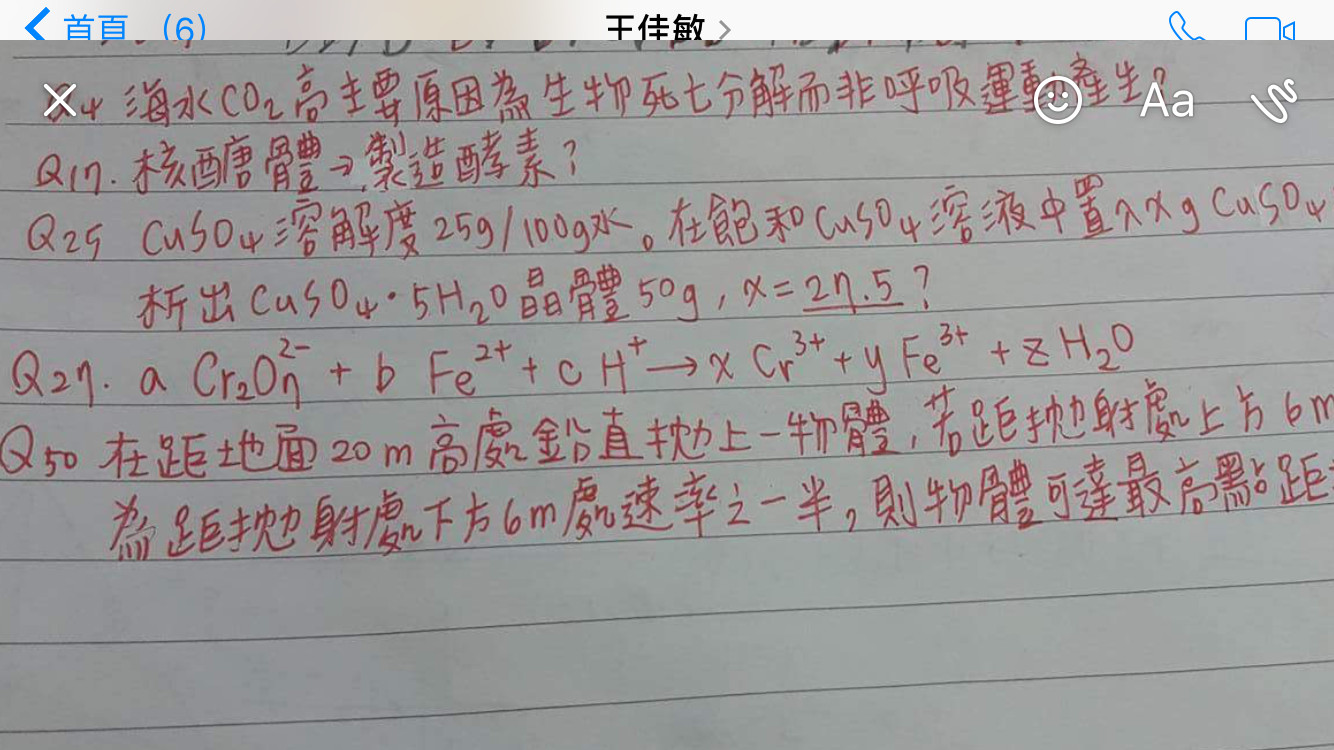 首頁 (6) 王佳敏
4 海水CO₂高主要原因為生物死亡分解而非呼吸運動產生?
Q17. 核醣體→製造酵素?
Q25 CuSO₄溶解度25g/100g水。在飽和CuSO₄溶液中置入xg CuSO₄
析出CuSO₄·5H₂O晶體50g, x=27.5?
Q27. a Cr₂O₇²⁻ + b Fe²⁺ + c H⁺ → x Cr³⁺ + y Fe³⁺ + z H₂O
Q50 在距地面20m高處鉛直拋上一物體,若距拋射處上方6m
為距拋射處下方6m處速率之一半,則物體可達最高點距
Aa